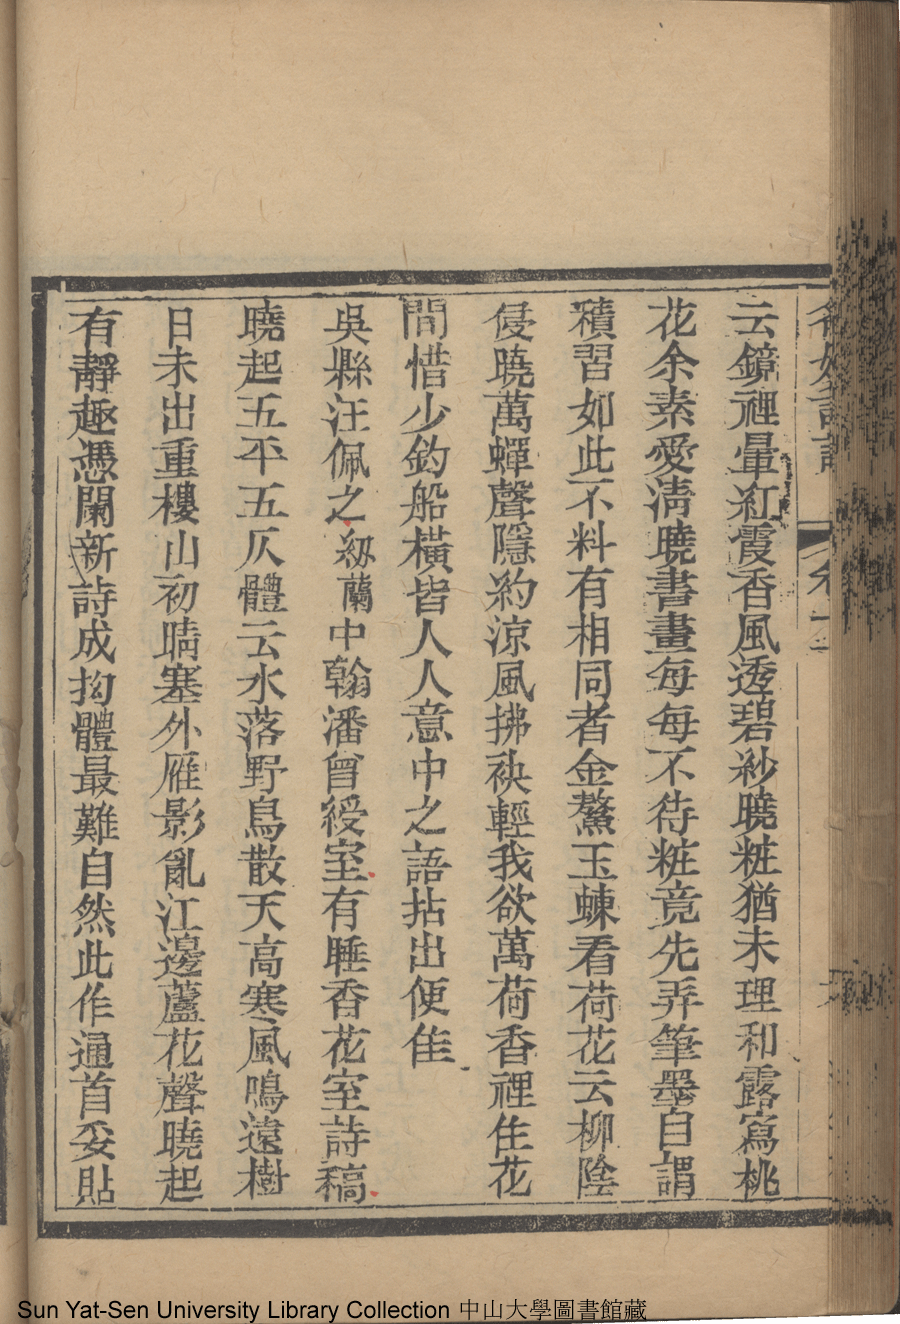 名媛詩話 卷十
云鏡裡暈紅霞香風透碧紗曉粧猶未理和露寫桃
花余素愛淸曉書畫每每不待粧竟先弄筆墨自謂
積習如此不料有相同者金鰲玉蝀看荷花云柳陰
侵曉萬蟬聲隱約涼風拂袂輕我欲萬荷香裡住花
間惜少釣船橫皆人人意中之語拈出便佳
吳縣汪佩之紉蘭中翰潘曾綬室有睡香花室詩稿
曉起五平五仄體云水落野鳥散天高寒風鳴遠樹
日未出重樓山初晴塞外雁影亂江邊蘆花聲曉起
有靜趣憑闌新詩成拗體最難自然此作通首妥貼
Sun Yat-Sen University Library Collection 中山大學圖書館藏